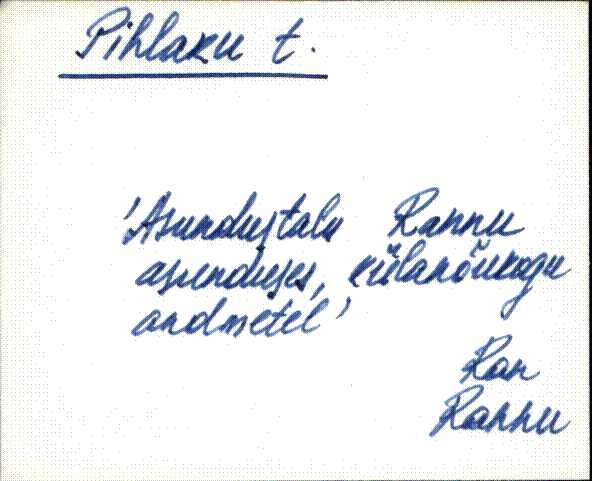 Pihlaku t.
'Asundustalu Rannu
asunduses, külanõukogu
andmetel'
Ran
Rannu